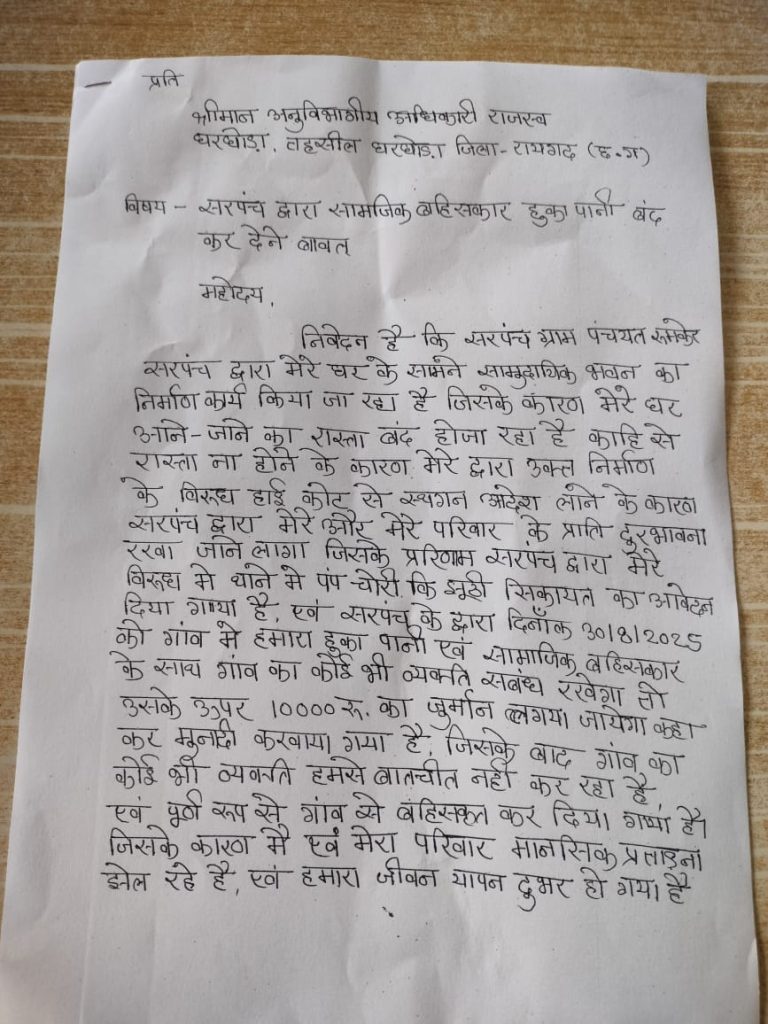 प्रति
श्रीमान अनुविभागीय अधिकारी राजस्व
घरघोड़ा, तहसील घरघोड़ा जिला- रायगढ़ (छ.ग)
विषय - सरपंच द्वारा सामजिक बहिसकार हुका पानी बंद
कर देने बावत्
महोदय,
निवेदन है कि सरपंच ग्राम पंचयत रुमकेरा
सरपंच द्वारा मेरे घर के सामने सामुदायिक भवन का
निर्माण कार्य किया जा रहा है जिसके कारण मेरे घर
आने-जाने का रास्ता बंद होजा रहा है काहि से
रास्ता ना होने के कारण मेरे द्वारा उक्त निर्माण
के विरुध हाई कोट से स्थगन अदेश लाने के कारण
सरपंच द्वारा मेरे और मेरे परिवार के प्राति दुरभावना
रखा जाने लागा जिसके प्ररिणाम सरपंच द्वारा मेरे
विरूध मे थाने मे पंप चोरी कि झूठी सिकायत का आवेदन
दिया गया है, एवं सरपंच के द्वारा दिनाँक 30/8/2025
को गांव मे हमारा हुका पानी एवं सामाजिक बहिसकार
के साथ गांव का कोई भी व्यक्ति सबंध रखेगा तो
उसके ऊपर 10000 रू. का जुर्मान लगया जायेगा कहा
कर मुनादी करवाया गया है, जिसके बाद गांव का
कोई भी व्यक्ती हमसे बातचीत नही कर रहा है
एवं पूर्ण रूप से गांव से बहिसकृत कर दिया गया है।
जिसके कारण मै एवं मेरा परिवार मानसिक प्रताड़ना
झेल रहे है, एवं हमारा जीवन यापन दुभर हो गया है